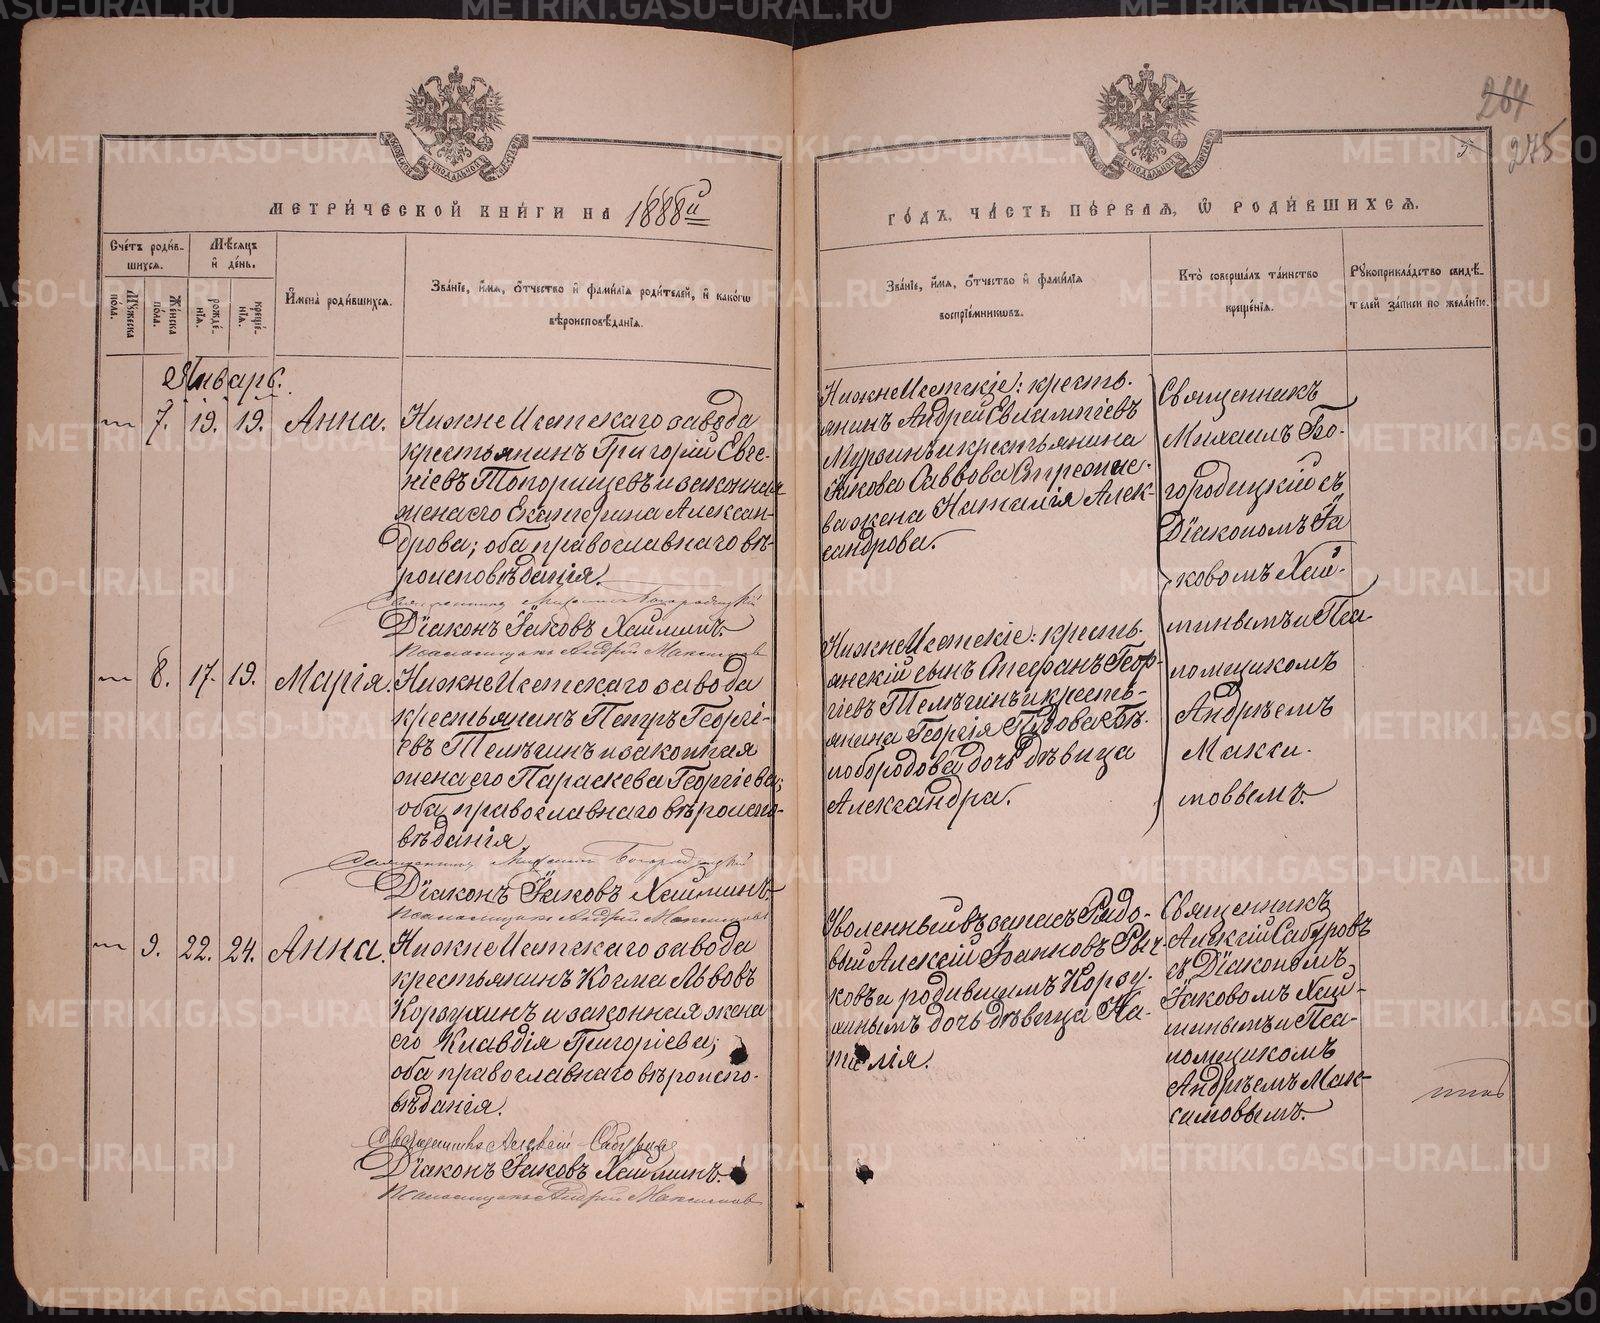 264
275
5
МЕТРИ́ЧЕСКОЙ КНИ́ГИ НА 1888й
ГО́ДЪ, ЧА́СТЬ ПЕ́РВАЯ, Ѡ РОДИ́ВШИХСЯ.
Сче́тъ роди́в-
шихся.
Мѣ́сяцъ
и де́нь.
Му́жеска
по́ла.
Же́нска
по́ла.
рожде́-
нія.
креще́-
нія.
И́мена роди́вшихся.
Зва́ніе, и́мя, ѻ́тчество и фами́лія роди́телей, и како́гѡ
вѣроисповѣ́данія.
Зва́ніе, и́мя, ѻ́тчество и фами́лія
воспріе́мниковъ.
Кто̀ соверша́лъ та́инство
креще́нія.
Рукоприкла́дство свидѣ́-
телей за́писи по жела́нію.
Январь.
7. 19. 19. Анна.
НижнеИсетскаго завода
крестьянинъ Григорій Евге-
ніевъ Топорищевъ и законная
жена его Екатерина Алексан-
дрова; оба православнаго вѣ-
роисповѣданія.
Священникъ Михаилъ Богородицкій
Діаконъ Іаковъ Хаиминъ.
Псаломщикъ Андрей Максимовъ
НижнеИсетскіе: кресть-
янинъ Андрей Евлампіевъ
Мурзинъ и крестьянина
Іакова Саввова Стреж
ва жена Наталія Алек-
сандрова.
Священникъ
Михаилъ Бо-
городицкій съ
Діакономъ Іа
ковомъ Хаи-
минымъ и Пса-
ломщикомъ
Андреемъ
Макси-
мовымъ.
8. 17. 19. Марія.
НижнеИсетскаго завода
крестьянинъ Петръ Георгі-
евъ Телѣгинъ и законная
жена его Параскева Георгіева;
оба православнаго вѣроиспо-
вѣданія.
Священникъ Михаилъ Богородицкій
Діаконъ Іаковъ Хаиминъ.
Псаломщикъ Андрей Максимовъ
НижнеИсетскіе: кресть-
янскій сынъ Стефанъ Геор-
гіевъ Телѣгинъ и кресть-
янина Георгія Бѣ-
лобородова дочь дѣвица
Александра.
9. 22. 24. Анна.
НижнеИсетскаго завода
крестьянинъ Косма Львовъ
Корзухинъ и законная жена
его Клавдія Григоріева;
оба православнаго вѣроиспо-
вѣданія.
Священникъ Алексій Сабуровъ
Діаконъ Іаковъ Хаиминъ.
Псаломщикъ Андрей Максимовъ
Уволенный въ запасъ Рядо-
вый Алексій Іоанновъ Рыч-
ковъ а родившимъ Корзу-
инымъ дочь дѣвица На-
талія.
Священникъ
Алексій Сабуровъ
съ Діакономъ
Іаковомъ Хаи-
минымъ и Пса-
ломщикомъ
Андреемъ Мак-
симовымъ.